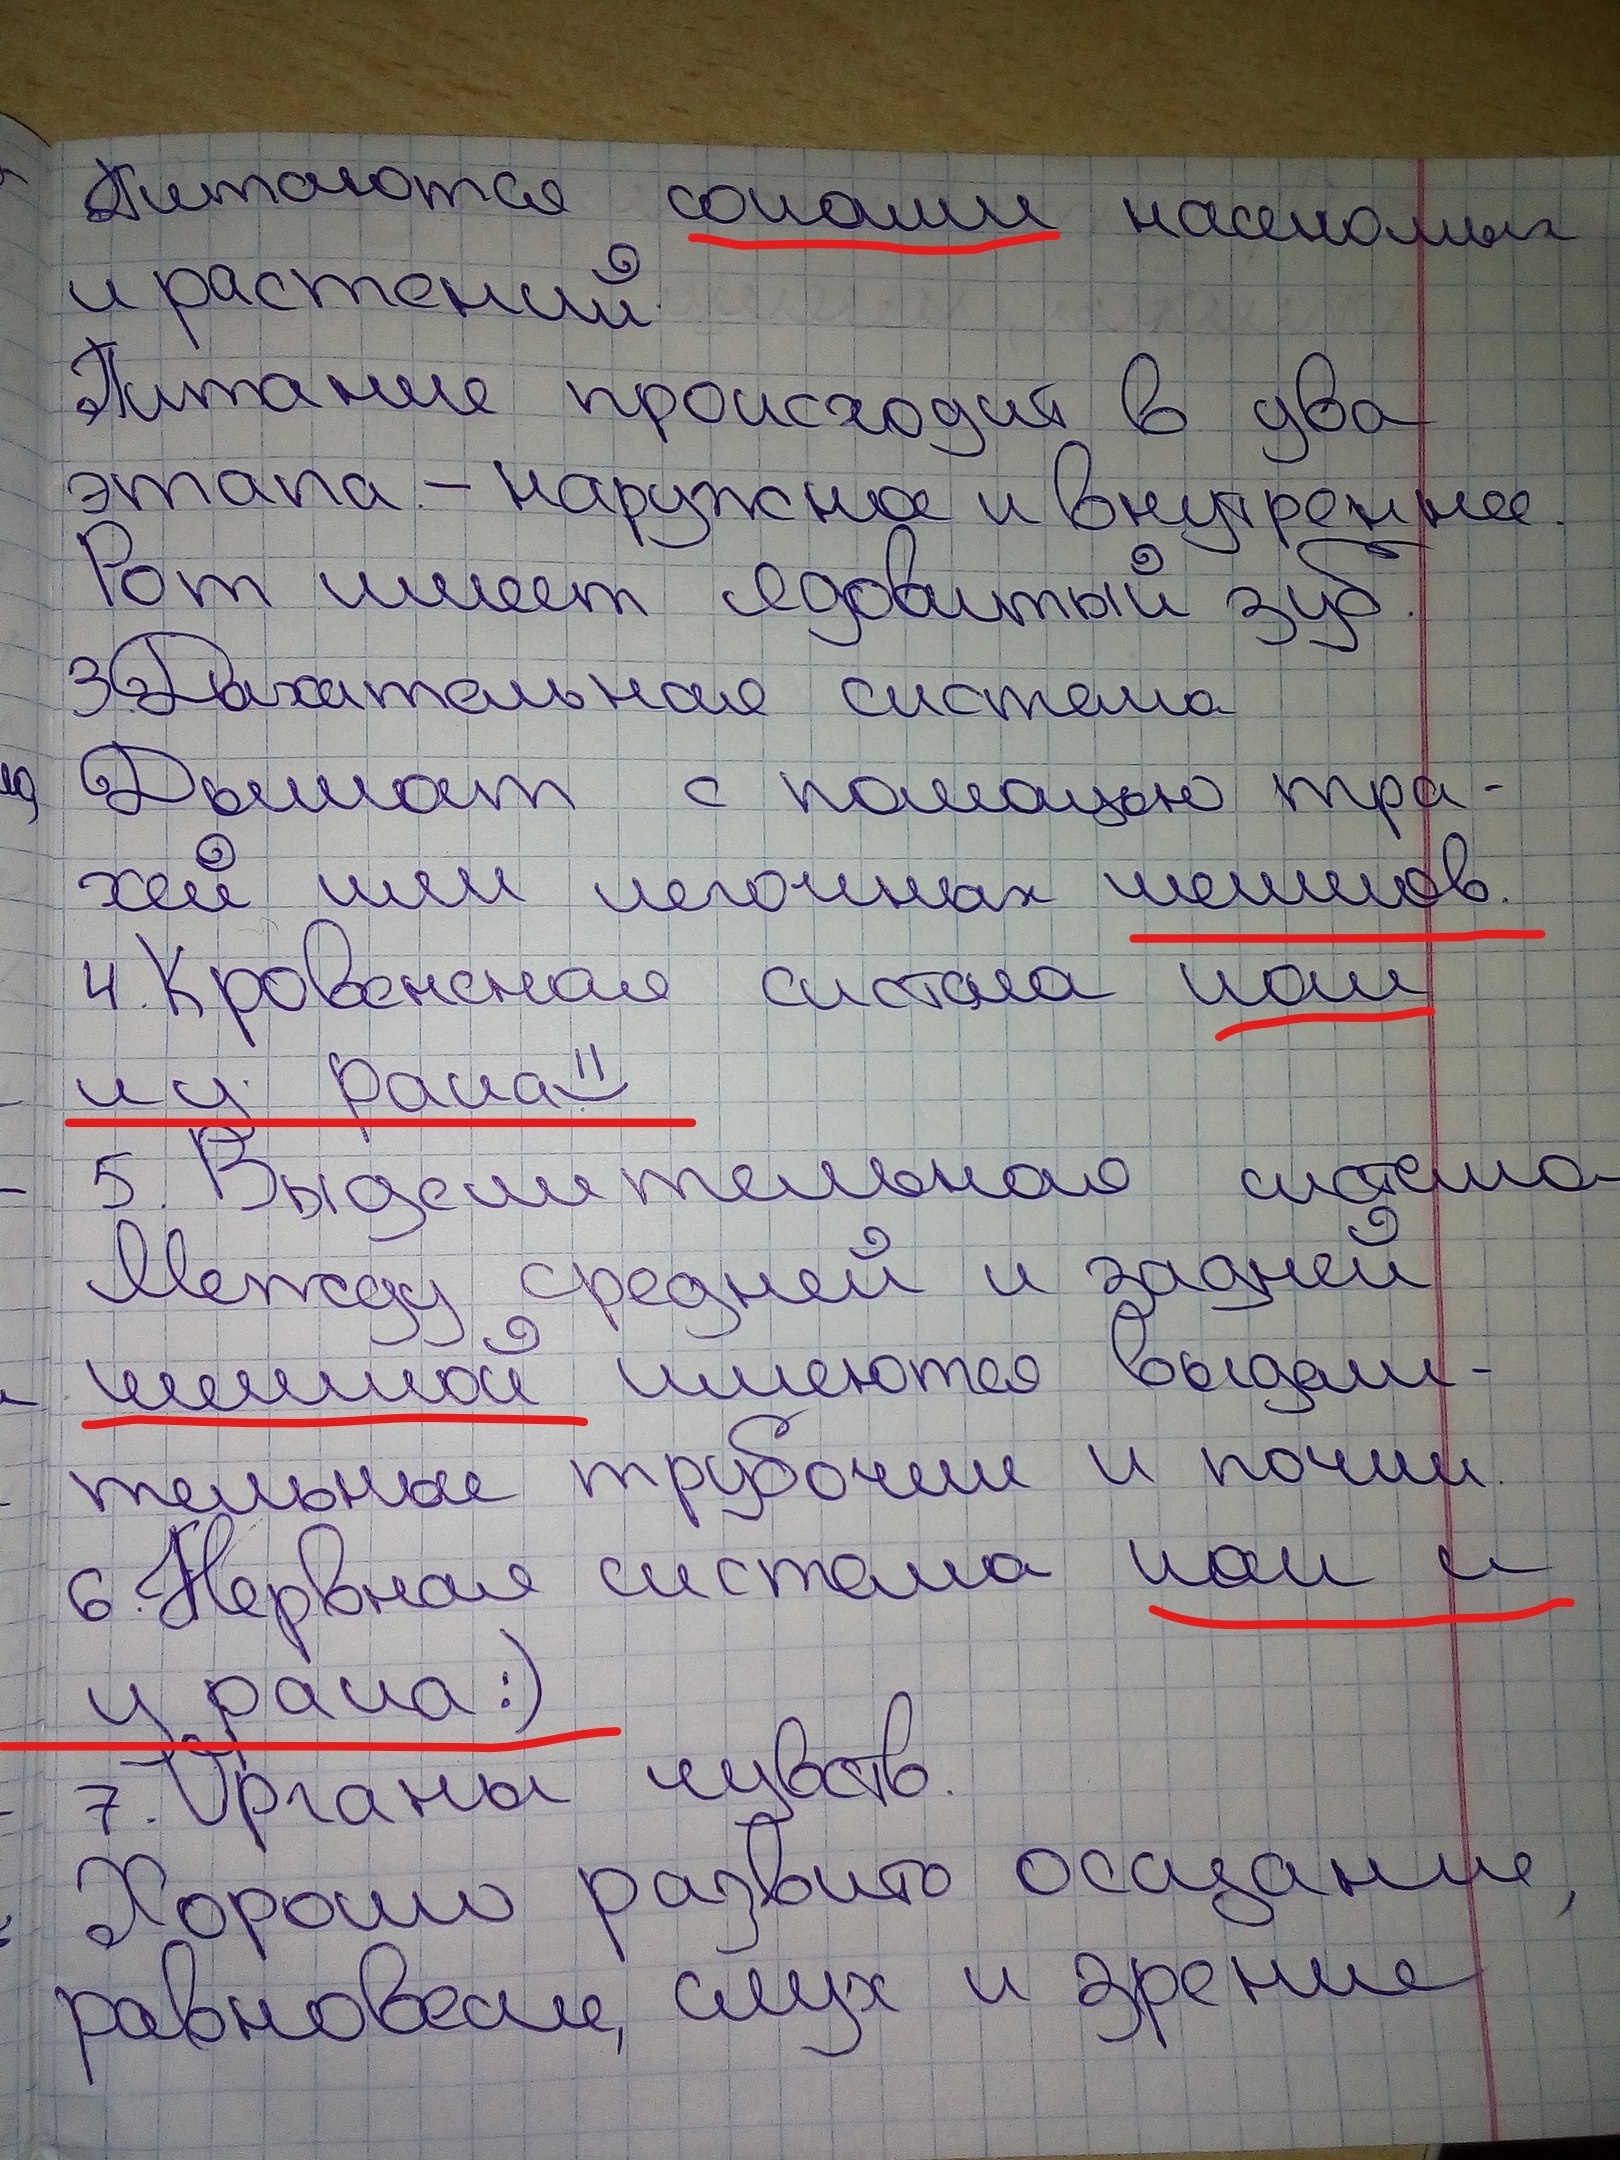 Питаются соками насекомых
и растений.
Питание происходит в два
этапа – наружное и внутреннее.
Рот имеет ядовитый зуб.
3. Дыхательная система
Дышат с помощью тра-
хей или легочных мешков.
4. Кровеносная система как
и у рака
5. Выделительная система
Между средней и задней
кишкой имеются выдели-
тельные трубочки и почки.
6. Нервная система как и
у рака :)
7. Органы чувств.
Хорошо развито осязание,
равновесие, слух и зрение